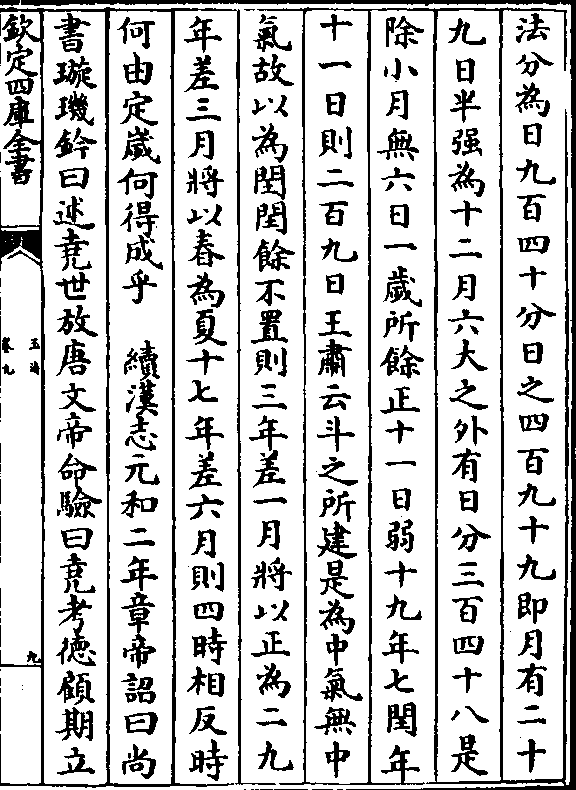 法分為日九百四十分日之四百九十九即月有二十
九日半强為十二月六大之外有日分三百四十八是
除小月無六日一歲所餘正十一日弱十九年七閏年
十一日則二百九日王肅云斗之所建是為中氣無中
氣故以為閏閏餘不置則三年差一月將以正為二九
年差三月將以春為夏十七年差六月則四時相反時
何由定歲何得成乎　續漢志元和二年章帝詔曰尚
書璇璣鈐曰述堯世放唐文帝命驗曰堯考德顧期立
欽定四庫全書
玉海
卷九
九